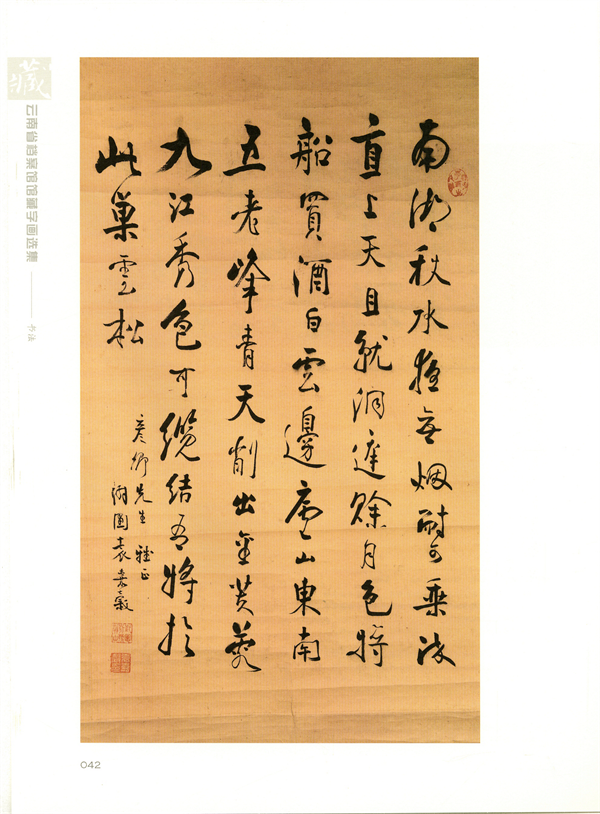 藏
云南省档案馆馆藏字画选集
书法
南湖秋水夜無烟耐可乘流
直上天且就洞庭賒月色將
船買酒白雲邊廬山東南
五老峰青天削出金芙蓉
九江秀色可纜結吾將於
此巢雲松
彥卿先生雅正
澍圃袁嘉穀
042